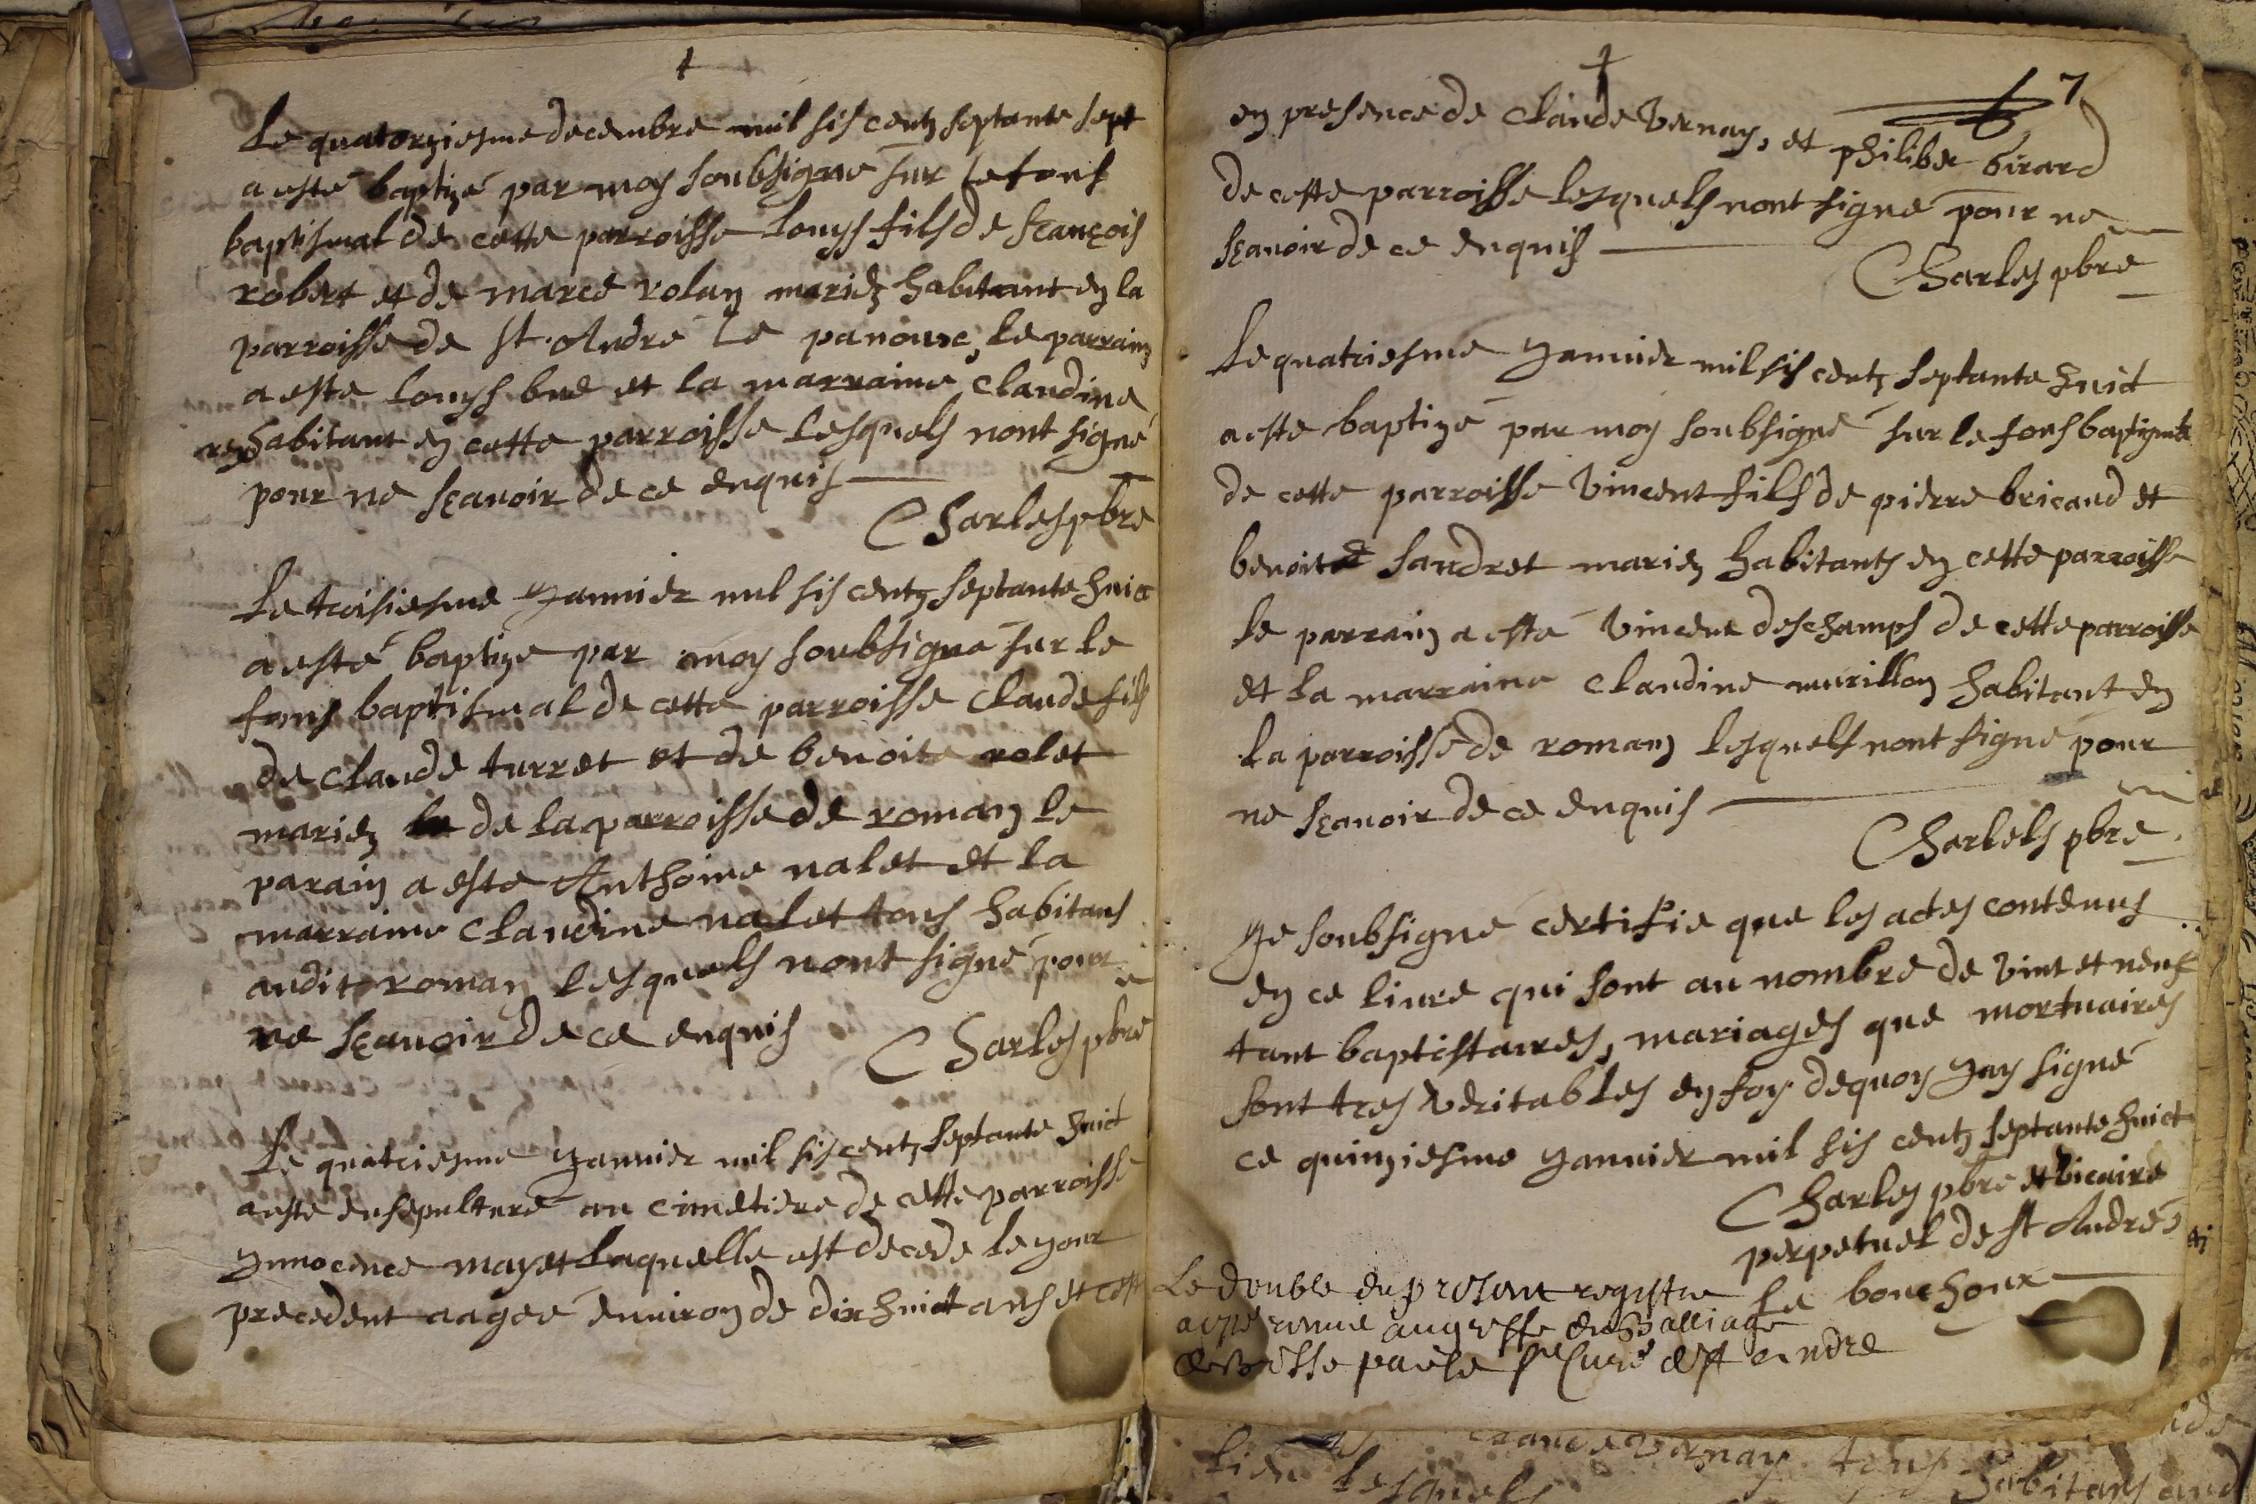 Le quatorziesme decembre mil sis centz septante sept
a esté baptizé par moy soubsigné sur le fons
baptismal de cette parroisse Louys fils de françois
robert et de marce rolan mariez habitant en la
parroisse de st. Andre le panouse, le parrain
a este Louys bue et la marraine Claudine
rey habitant en cette parroisse lesquels nont signé
pour ne sçauoir de ce enquis
Charles pbre
Le troisiesme Jannier mil sis centz septante huict
a esté baptize par moy soubsigné sur le
fons baptismal de cette parroisse Claude fils
de Claude turret et de benoite rolet
mariez de la parroisse de roman le
parain a este Anthoine nalet et la
marraine Claudine nalet tous habitans
audit roman lesquels nont signé pour
ne sçauoir de ce enquis
Charles pbre
Le quatriesme Jannier mil sis centz septante huict
a este ensepulturé au cimetiere de cette parroisse
Innocence mayet laquelle est decede le jour
precedent aagee enuiron de dix huict ans et
7
en presence de Claude Vernay, et philiber Girard
de cette parroisse lesquels nont signé pour ne
sçauoir de ce enquis
Charles pbre
Le quatriesme Jannier mil sis centz septante huict
a este baptizé par moy soubsigné sur le fons baptismal
de cette parroisse Vincent fils de pierre bricaud et
benoite sandret mariez habitants en cette parroisse
le parrain a esté Vincent deschamps de cette parroisse
et la marraine Claudine murillon habitant en
la parroisse de roman lesquels nont signé pour
ne sçauoir de ce enquis
Charles pbre
Je soubsigné certifie que les actes contenus
en ce liure qui sont au nombre de vint et neuf
tant baptistaires, mariages que mortuaires
sont tres veritables en foy dequoy Jay signé
ce quinziesme Jannier mil sis centz septante huict
Charles pbre et vicaire
perpetuel de st André
le bouchoux
Le double du present registre
a esté remis au greffe du Balliage
de Bresse par le sr Curé de st andre
Claude Vernay tous
lieu lesquels habitans aud